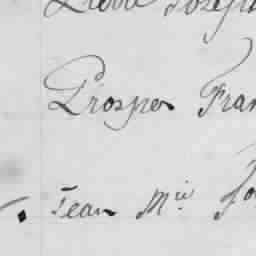 Pierre Joseph
Prosper Fran
Jean Mie Jo